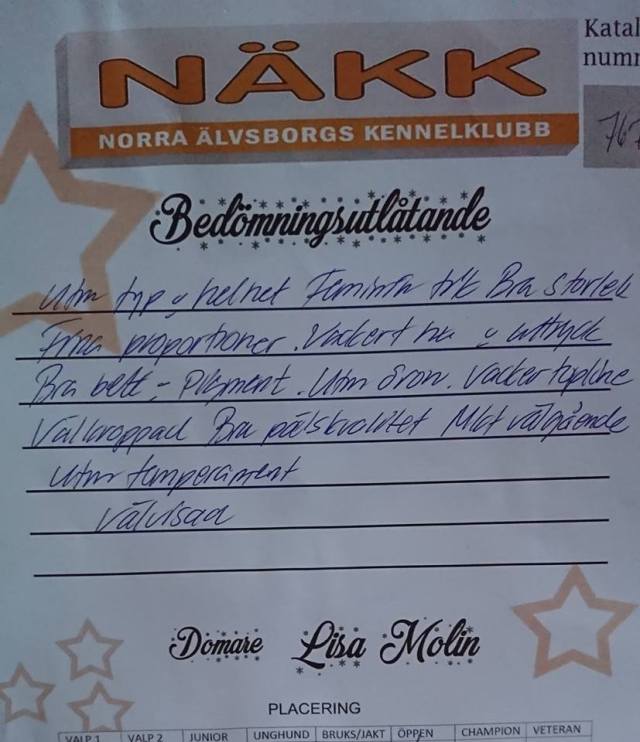 Katal
numm
NÄKK
NORRA ÄLVSBORGS KENNELKLUBB
767
Bedömningsutlåtande
Utm typ o helhet Feminin tik Bra storlek
Fina proportioner. Vackert hu o uttryck
Bra bett - Pigment. Utm öron. Vacker topline
Välkroppad Bra pälskvalitet Mkt välgående
Utm temperament
Välvisad
Domare Lisa Molin
PLACERING
VALP 1 VALP 2 JUNIOR UNGHUND BRUKS/JAKT ÖPPEN CHAMPION VETERAN